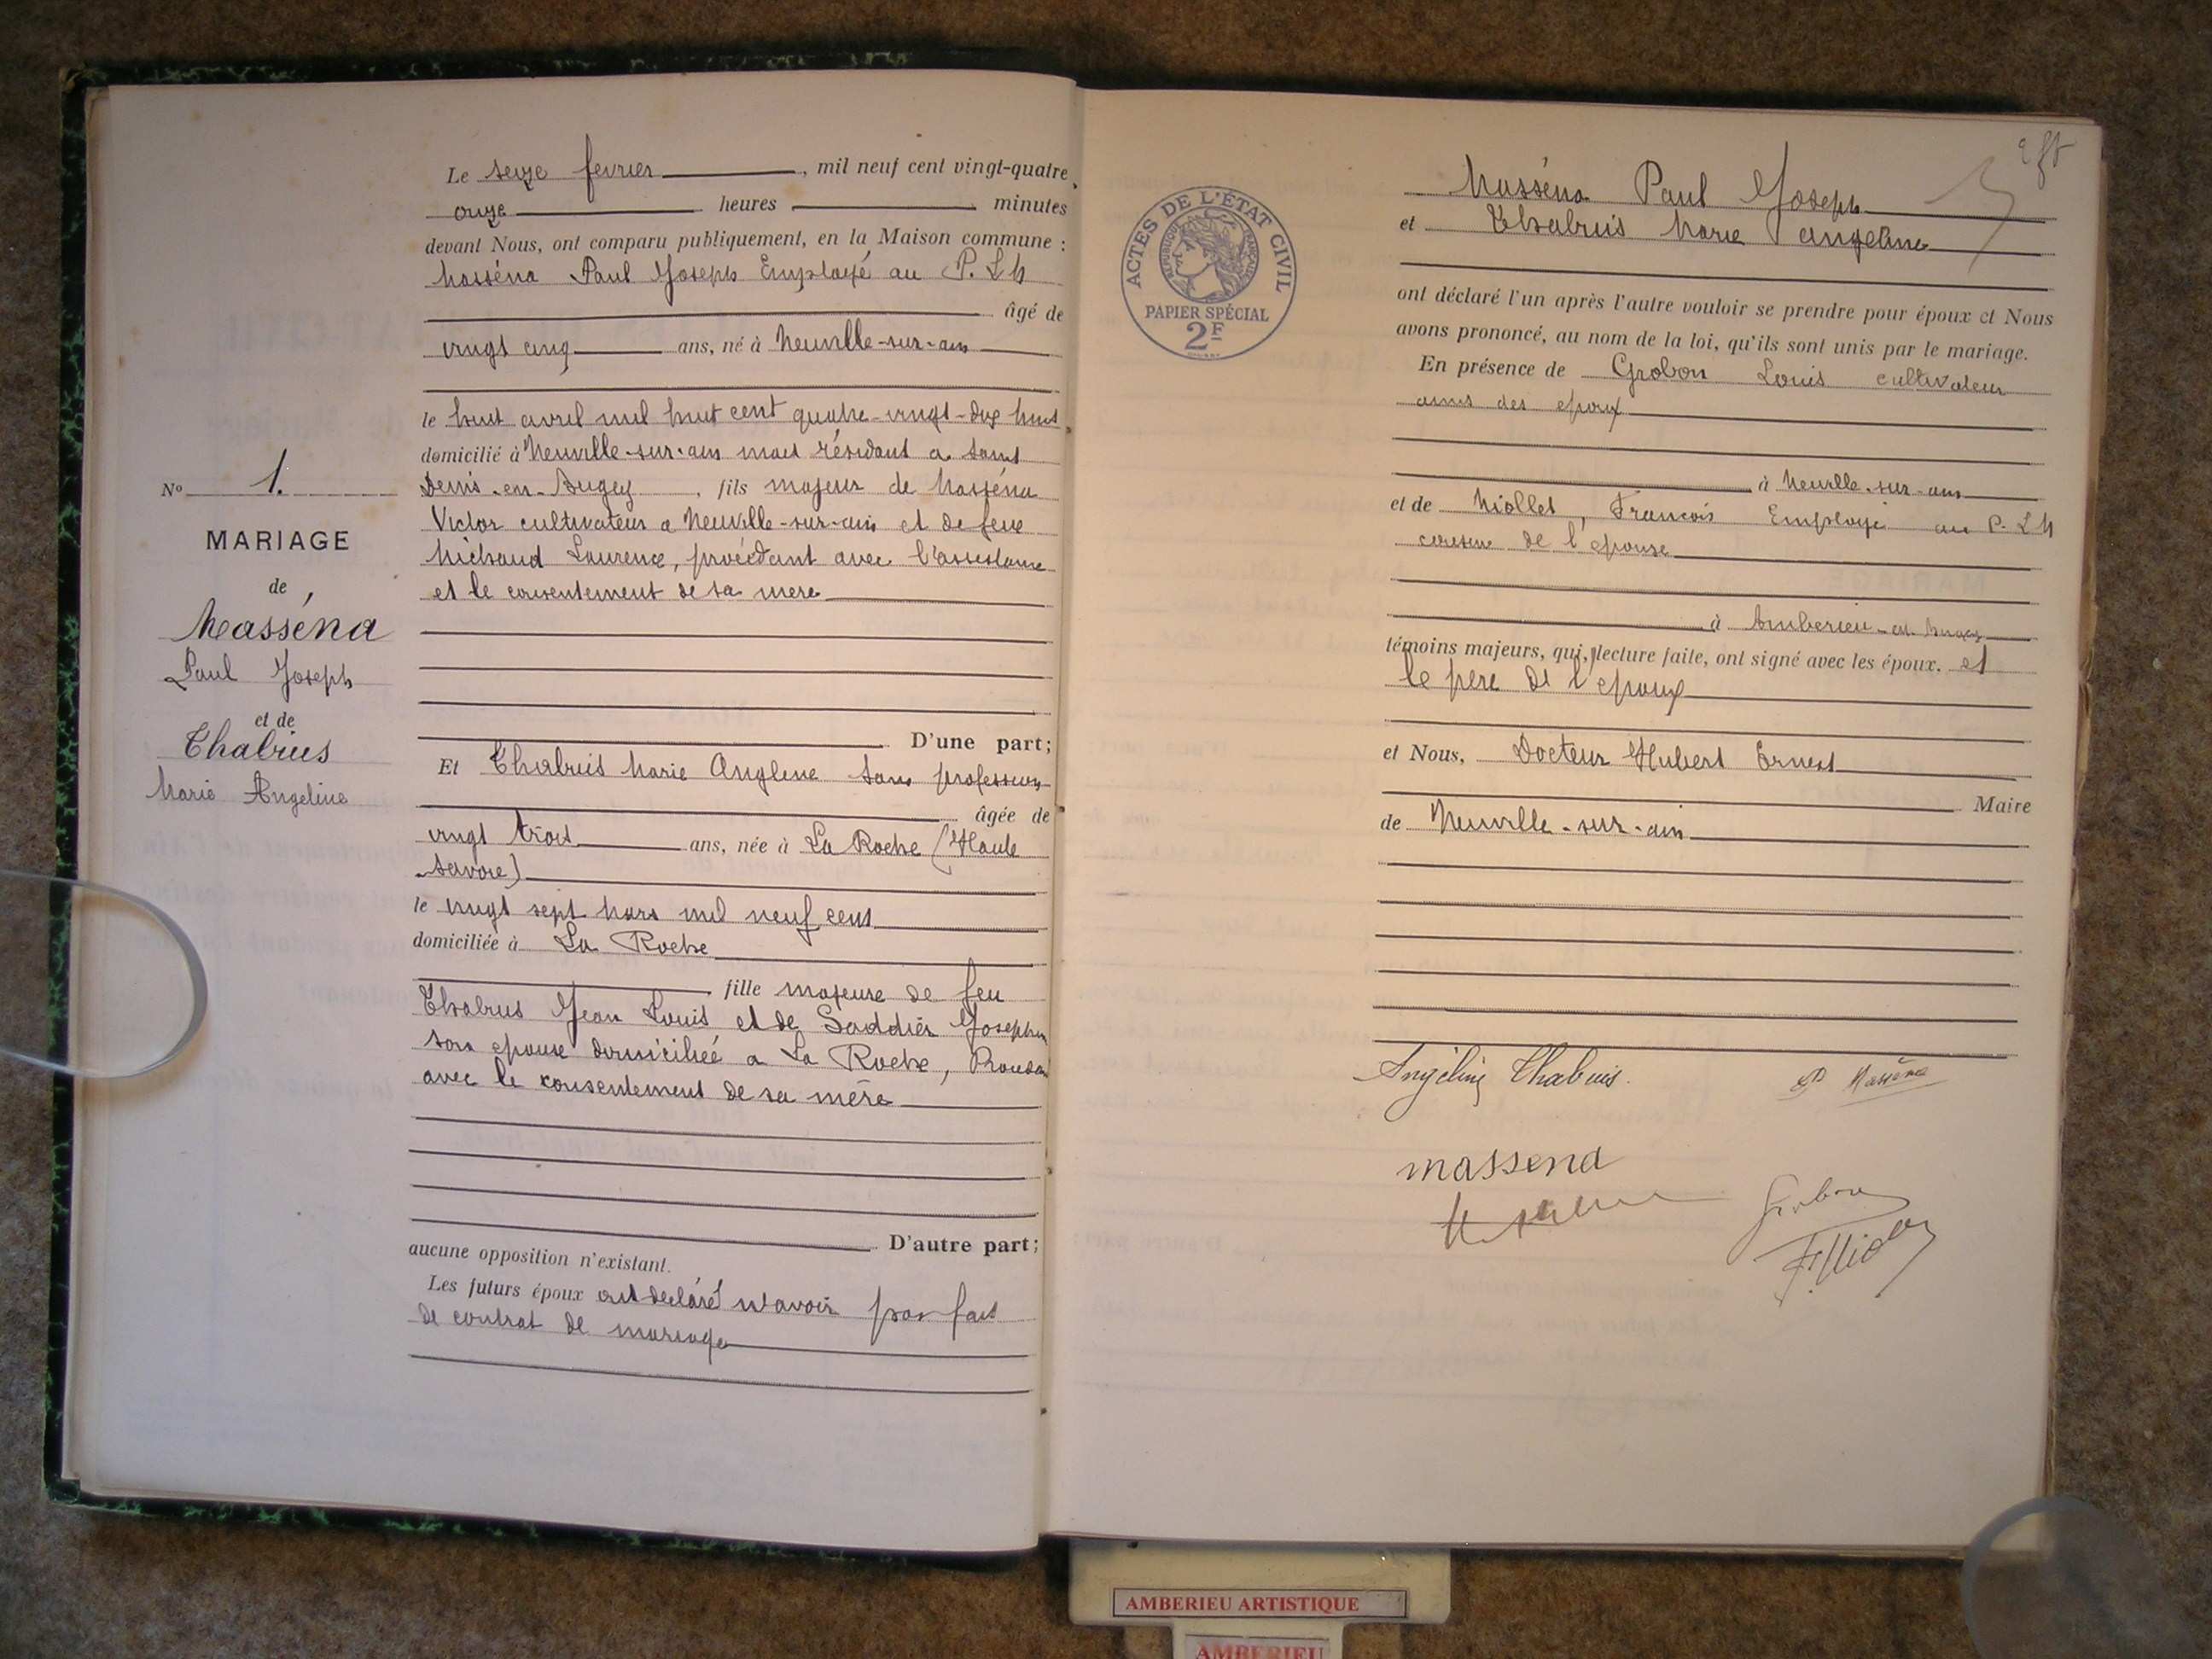 Le seize fevrier, mil neuf cent vingt-quatre,
onze heures minutes
devant Nous, ont comparu publiquement, en la Maison commune :
Masséna Paul Joseph Employé au P. L M
âgé de
vingt cinq ans, né à Neuville-sur-ain
le huit avril mil huit cent quatre-vingt-dix huit
domicilié à Neuville-sur-ain mais résidant a Saint
Denis-en-Bugey, fils majeur de Masséna
Victor cultivateur a Neuville-sur-ain et de feue
Michaud Laurence, procédant avec l'assistance
et le consentement de sa mere
D'une part;
N° 1.
MARIAGE
de
Masséna
Paul Joseph
et de
Thabuis
Marie Angeline
Et Thabuis Marie Angline sans profession
âgée de
vingt trois ans, née à La Roche (Haute
Savoie)
le vingt sept Mars mil neuf cent
domiciliée à La Roche
fille majeure de feu
Thabuis Jean Louis et de Saddier Josephin
son epouse domiciliée a La Roche,
avec le consentement de sa mère
D'autre part;
aucune opposition n'existant.
Les futurs époux ont declaré n'avoir pas fait
de contrat de mariage
ACTES DE L'ÉTAT CIVIL
RÉPUBLIQUE FRANÇAISE
PAPIER SPÉCIAL
2F
Masséna Paul Joseph
et Thabuis Marie angeline
ont déclaré l'un après l'autre vouloir se prendre pour époux et Nous
avons prononcé, au nom de la loi, qu'ils sont unis par le mariage.
En présence de Grobon Louis cultivateur
amis des epoux
à Neuville-sur-ain
et de Miollet, Francois Employé au P. L M
cousin de l'epouse
à Amberieu-en-Bugey
témoins majeurs, qui, lecture faite, ont signé avec les époux. et
le pere de l'epoux
et Nous, Docteur Hubert Ernest
Maire
de Neuville-sur-ain
Angéline Thabuis. P Masséna
massena
Grobon
AMBERIEU ARTISTIQUE
AMBERIEU